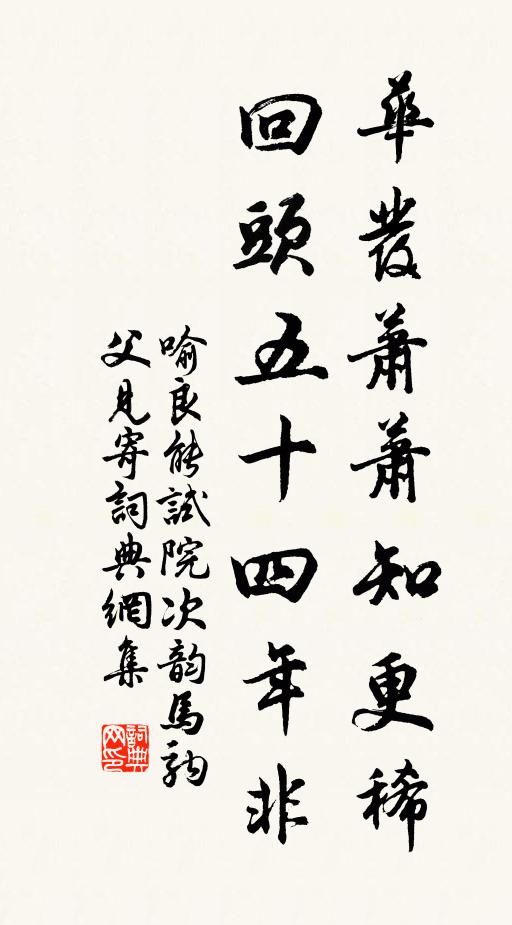 華發蕭蕭知更稀
回頭五十四年非
喻良能試院次韵馬駒
父見寄詞典網集
詞典
网印